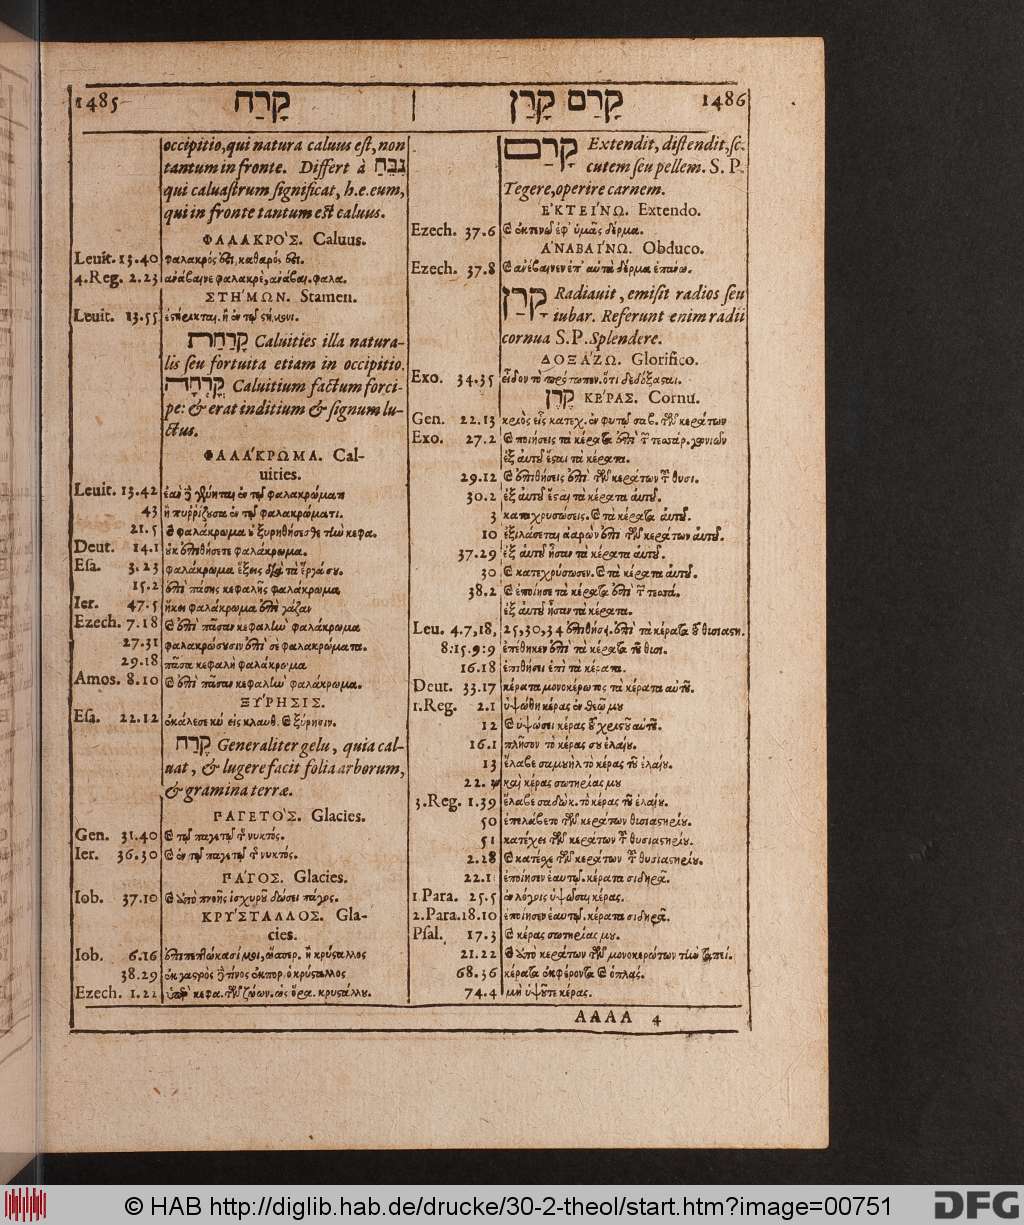 1485 קָרַח | קָרַם קָרַן 1486
occipitio, qui natura caluus est, non
tantum in fronte. Differt à גִּבֵּחַ
qui caluastrum significat, h.e. eum,
qui in fronte tantum est caluus.
ΦΑΛΑΚΡΟ'Σ. Caluus.
Leuit. 13.40 φαλακρός ἐστι, καθαρός ἐστι.
4.Reg. 2.23 ἀνάβαινε φαλακρὲ, ἀνάβαι. φαλα.
ΣΤΗ'ΜΩΝ. Stamen.
Leuit. 13.55
קָרַחַת Caluities illa natura-
lis seu fortuita etiam in occipitio.
קָרְחָה Caluitium factum forci-
pe: & erat inditium & signum lu-
ctus.
ΦΑΛΑ'ΚΡΩΜΑ. Cal-
uities.
Leuit. 13.42 ἐὰν ᾖ γένηται ἐν τῷ φαλακρώματι
43 ἢ πυρρίζουσα ἐν τῷ φαλακρώματι.
21.5 φαλάκρωμα οὐ ξυρηθήσεσθε τὴν κεφα.
Deut. 14.1 οὐκ ἐπιθήσετε φαλάκρωμα.
Esa. 3.23 φαλάκρωμα ἕξεις διὰ τὰ ἔργα σου.
15.2 ἐπὶ πάσης κεφαλῆς φαλάκρωμα
Ier. 47.5 ἥκει φαλάκρωμα ἐπὶ γάζαν
Ezech. 7.18 καὶ ἐπὶ πᾶσαν κεφαλὴν φαλάκρωμα
27.31 φαλακρώσουσιν ἐπὶ σὲ φαλακρώματα.
29.18 πᾶσα κεφαλὴ φαλάκρωμα
Amos. 8.10 καὶ ἐπὶ πᾶσαν κεφαλὴν φαλάκρωμα.
ΞΥ'ΡΗΣΙΣ.
Esa. 22.12 ἐκάλεσε κύ εἰς κλαυθ. καὶ ξύρησιν.
קֶרַח Generaliter gelu, quia cal-
uat, & lugere facit folia arborum,
& gramina terræ.
ΠΑΓΕΤΟ'Σ. Glacies.
Gen. 31.40 καὶ τῷ παγετῷ τῆς νυκτός.
Ier. 36.30 καὶ ἐν τῷ παγετῷ τῆς νυκτός.
ΠΑ'ΓΟΣ. Glacies.
Iob. 37.10 καὶ ἀπὸ πνοῆς ἰσχυροῦ δώσει πάγος.
ΚΡΥ'ΣΤΑΛΛΟΣ. Gla-
cies.
Iob. 6.16 ἐπιπεπτώκασί μοι, ὥσπερ. ἢ κρύσταλλος
38.29 ἐκ γαστρὸς τίνος ἐκπορ. ὁ κρύσταλλος
Ezech. 1.22 ὑπὲρ κεφα. τῶν ζώων. ὡς ὅρα. κρυστάλλου.
קָרַם Extendit, distendit, sc.
cutem seu pellem. S. P.
Tegere, operire carnem.
ἘΚΤΕΙ'ΝΩ. Extendo.
Ezech. 37.6 καὶ ἐκτενῶ ἐφ' ὑμᾶς δέρμα.
ἈΝΑΒΑΙ'ΝΩ. Obduco.
Ezech. 37.8 καὶ ἀνέβαινεν ἐπ' αὐτὰ δέρμα ἐπάνω.
קָרַן Radiauit, emisit radios seu
iubar. Referunt enim radii
cornua S.P. Splendere.
ΔΟΞΑ'ΖΩ. Glorifico.
Exo. 34.35 εἶδον τὸ πρόσωπον. ὅτι δεδόξασται.
קֶרֶן ΚΕ'ΡΑΣ. Cornu.
Gen. 22.13 κριὸς εἷς κατεχ. ἐν φυτῷ σαβ. τῶν κεράτων
Exo. 27.2 καὶ ποιήσεις τὰ κέρατα ἐπὶ τῶν τεσσάρ. γωνιῶν
ἐξ αὐτοῦ ἔσται τὰ κέρατα.
29.12 καὶ ἐπιθήσεις ἐπὶ τῶν κεράτων τοῦ θυσι.
30.2 ἐξ αὐτοῦ ἔσται τὰ κέρατα αὐτοῦ.
3 καταχρυσώσεις. καὶ τὰ κέρατα αὐτοῦ.
10 ἐξιλάσεται ἀαρὼν ἐπὶ τῶν κεράτων αὐτοῦ.
37.29 ἐξ αὐτοῦ ἦσαν τὰ κέρατα αὐτοῦ.
30 καὶ κατεχρύσωσεν. καὶ τὰ κέρατα αὐτοῦ.
38.2 καὶ ἐποίησε τὰ κέρατα ἐπὶ τῶν τεσσά.
ἐξ αὐτοῦ ἦσαν τὰ κέρατα.
Leu. 4.7,18, 25,30,34 ἐπιθήσει. ἐπὶ τὰ κέρατα τοῦ θυσιαστη.
8:15.9:9 ἐπέθηκεν ἐπὶ τὰ κέρατα τοῦ θυσι.
16.18 ἐπιθήσει ἐπὶ τὰ κέρατα.
Deut. 33.17 κέρατα μονοκέρωτος τὰ κέρατα αὐτοῦ.
1.Reg. 2.1 ὑψώθη κέρας ἐν θεῷ μου
12 καὶ ὑψώσει κέρας τοῦ χριστοῦ αὐτοῦ.
16.1 πλῆσον τὸ κέρας σου ἐλαίου.
13 ἔλαβε σαμουὴλ τὸ κέρας τοῦ ἐλαίου.
22. καὶ κέρας σωτηρίας μου
3.Reg. 1.39 ἔλαβε σαδὼκ. τὸ κέρας τοῦ ἐλαίου.
50 ἐπελάβετο τῶν κεράτων θυσιαστηρίου.
51 κατέχει τῶν κεράτων τοῦ θυσιαστηρίου.
2.28 καὶ κατέσχε τῶν κεράτων τοῦ θυσιαστηρίου.
22.1 ἐποίησεν ἑαυτῷ. κέρατα σιδηρᾶ.
1 Para. 25.5 ἐν λόγοις ὑψῶσαι κέρας.
2.Para. 18.10 ἐποίησεν ἑαυτῷ. κέρατα σιδηρᾶ.
Psal. 17.3 καὶ κέρας σωτηρίας μου.
21.22 καὶ ἀπὸ κεράτων τῶν μονοκερώτων τὴν ταπεί.
68.36 κέρατα ἐκφέροντα καὶ ὁπλάς.
74.4 μὴ ὑψοῦτε κέρας.
AAAA 4
© HAB http://diglib.hab.de/drucke/30-2-theol/start.htm?image=00751
DFG